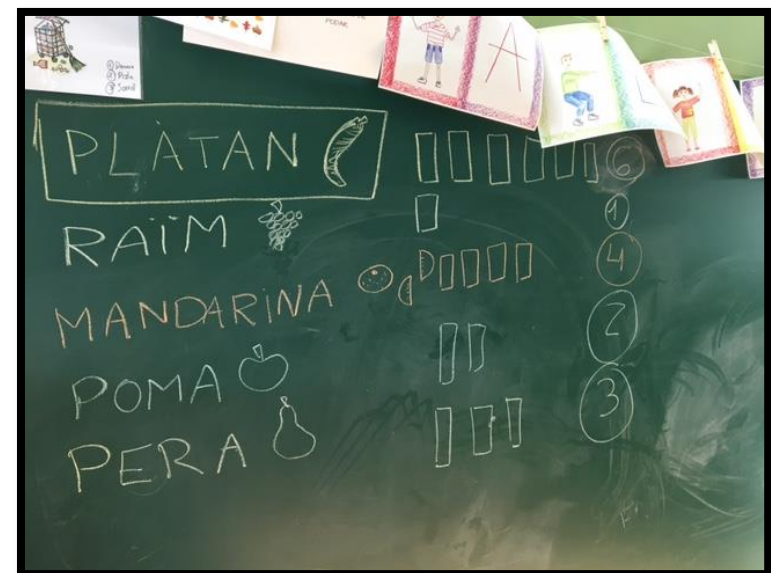 PODAR
A
PLÀTAN 6
RAÏM 1
MANDARINA 4
POMA 2
PERA 3